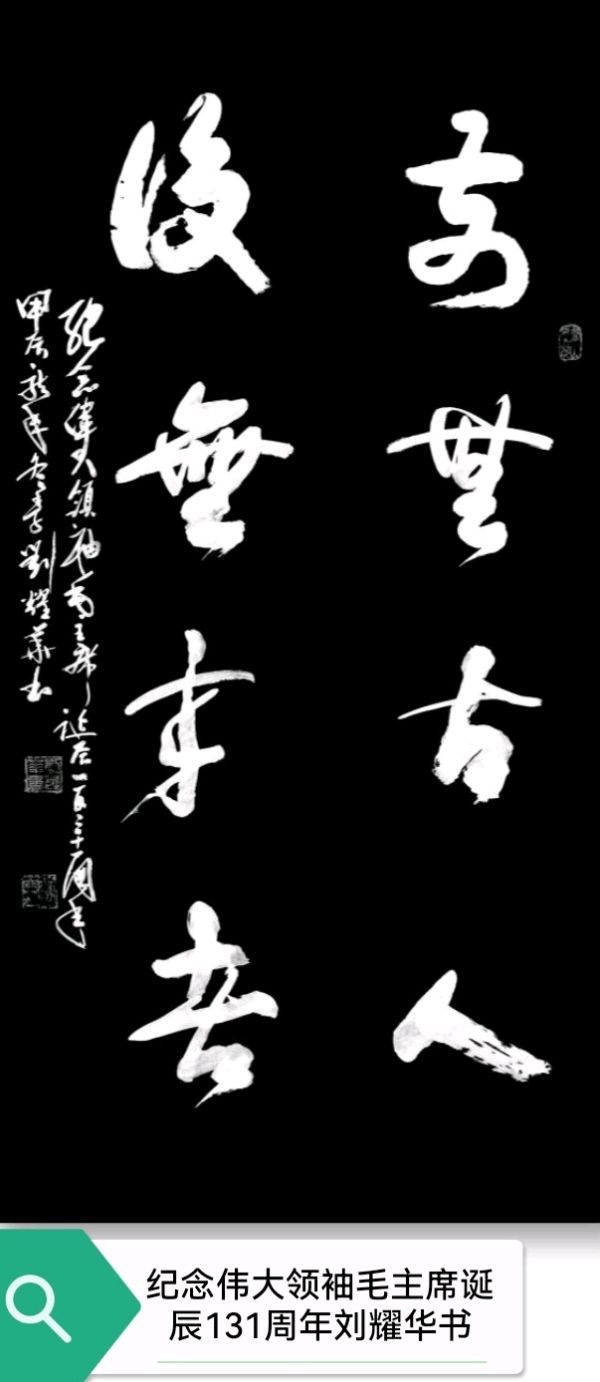 前無古人
後無来者
紀念偉大領袖毛主席誕辰一百三十一周年
甲辰龍年冬季劉耀華书
纪念伟大领袖毛主席诞
辰131周年刘耀华书